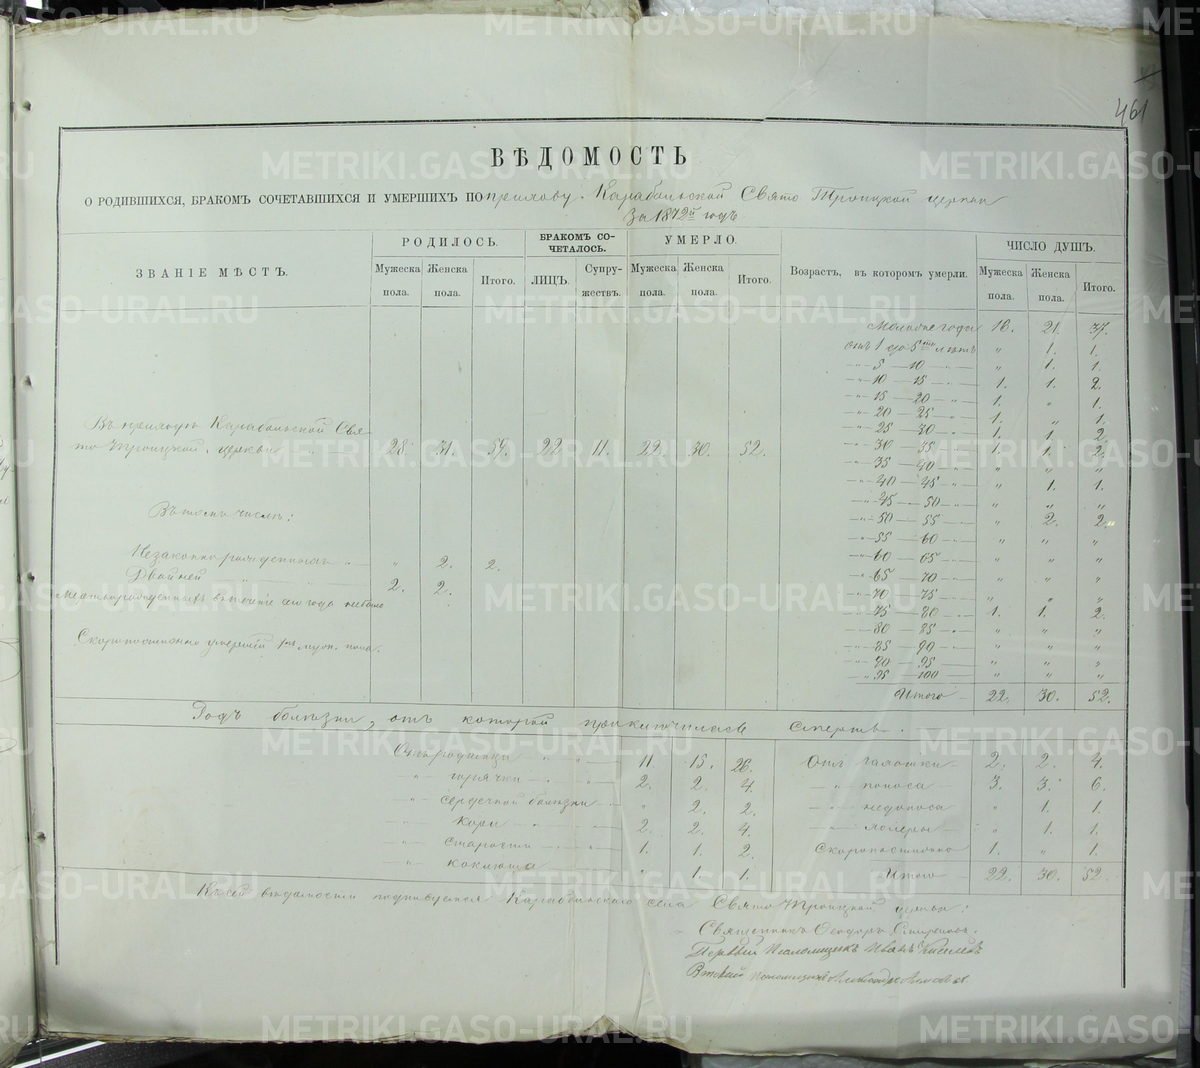 461
ВѢДОМОСТЬ
О РОДИВШИХСЯ, БРАКОМЪ СОЧЕТАВШИХСЯ И УМЕРШИХЪ ПО приходу Карабольской Свято Троицкой церкви
За 1872й годъ.
ЗВАНІЕ МѢСТЪ. РОДИЛОСЬ. БРАКОМЪ СОЧЕТАЛОСЬ. УМЕРЛО. Возрастъ, въ которомъ умерли. ЧИСЛО ДУШЪ.
Мужеска пола. Женска пола. Итого. ЛИЦЪ. Супружествъ. Мужеска пола. Женска пола. Итого. Мужеска пола. Женска пола. Итого.
Моложе года 16. 21. 37.
отъ 1 до 5ти лѣтъ „ 1. 1.
5 — 10 „ 1. 1.
10 — 15 1. 1. 2.
15 — 20 1. „ 1.
20 — 25 1. „ 1.
25 — 30 1. 1. 2.
30 — 35 1. 1. 2.
35 — 40 „ „ „
40 — 45 „ 1. 1.
45 — 50 „ „ „
50 — 55 „ 2. 2.
55 — 60 „ „ „
60 — 65 „ „ „
65 — 70 „ „ „
70 — 75 „ „ „
75 — 80 1. 1. 2.
80 — 85 „ „ „
85 — 90 „ „ „
90 — 95 „ „ „
95 — 100 „ „ „
Итого 22. 30. 52.
Въ приходѣ Карабольской Свя-
то Троицкой церкви 28. 31. 59. 22 11. 22. 30. 52.
Въ томъ числѣ:
Незаконнорожденныхъ „ 2. 2.
Двойней 2. 2.
Мертворожденныхъ въ теченіе сего года небыло
Скоропостижно умершій 1нъ муж. пола.
Родъ болѣзни, отъ которой приключилась смерть.
Отъ родимца 11. 15. 26.
„ горячки 2. 2. 4.
„ сердечной болѣзни „ 2. 2.
„ кори 2. 2. 4.
„ старости 1. 1. 2.
„ коклюша „ 1. 1.
Отъ 2. 2. 4.
„ поноса 3. 3. 6.
„ недоноса „ 1. 1.
„ „ 1. 1.
Скоропостижно 1. „ 1.
Итого 22. 30. 52.
Къ сей вѣдомости подписуемся Карабольскаго села Свято Троицкой церкви:
Священникъ Ѳеодоръ Смирновъ.
Первый Псаломщикъ Иванъ Киселевъ
Второй Псаломщикъ Александръ
METRIKI.GASO-URAL.RU